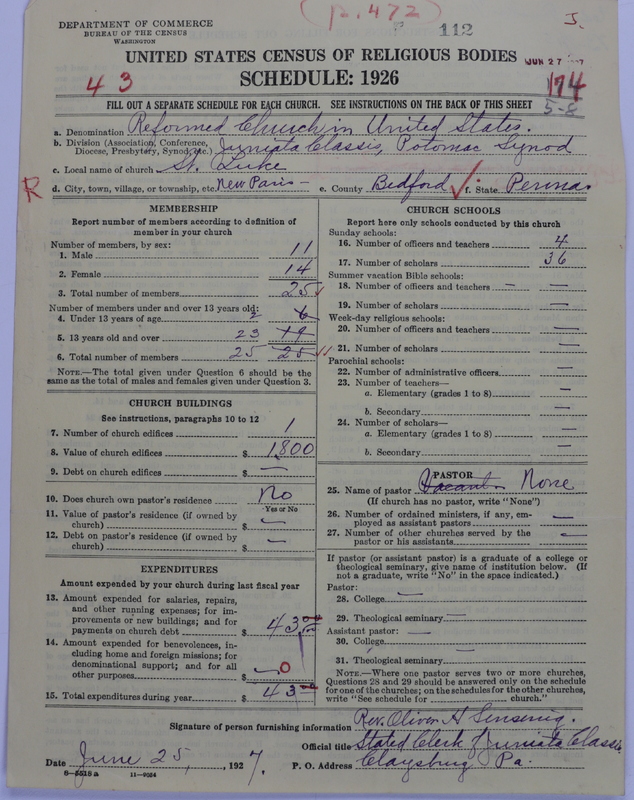 (p. 472)
112
J.
DEPARTMENT OF COMMERCE
BUREAU OF THE CENSUS
WASHINGTON
UNITED STATES CENSUS OF RELIGIOUS BODIES
JUN 27
SCHEDULE: 1926
4 3
174
FILL OUT A SEPARATE SCHEDULE FOR EACH CHURCH. SEE INSTRUCTIONS ON THE BACK OF THIS SHEET
5-8
a. Denomination Reformed Church in United States.
b. Division (Association, Conference, Diocese, Presbytery, Synod, etc.) Juniata Classis, Potomac Synod
c. Local name of church St. Luke
R
d. City, town, village, or township, etc. New Paris — e. County Bedford ✓ f. State Penna.
MEMBERSHIP
Report number of members according to definition of
member in your church
Number of members, by sex:
1. Male 11
2. Female 14
3. Total number of members 25 ✓
Number of members under and over 13 years old:
4. Under 13 years of age 2 6
5. 13 years old and over 23 19
6. Total number of members 25 25 ✓✓
NOTE.—The total given under Question 6 should be
the same as the total of males and females given under Question 3.
CHURCH BUILDINGS
See instructions, paragraphs 10 to 12
7. Number of church edifices 1
8. Value of church edifices $ 1,800
9. Debt on church edifices $ —
10. Does church own pastor's residence No
Yes or No
11. Value of pastor's residence (if owned by
church) $ —
12. Debt on pastor's residence (if owned by
church) $ —
EXPENDITURES
Amount expended by your church during last fiscal year
13. Amount expended for salaries, repairs,
and other running expenses; for im-
provements or new buildings; and for
payments on church debt $ 43.00
14. Amount expended for benevolences, in-
cluding home and foreign missions; for
denominational support; and for all
other purposes $ — 0
15. Total expenditures during year $ 43.00
CHURCH SCHOOLS
Report here only schools conducted by this church
Sunday schools:
16. Number of officers and teachers 4
17. Number of scholars 36
Summer vacation Bible schools:
18. Number of officers and teachers — —
19. Number of scholars —
Week-day religious schools:
20. Number of officers and teachers —
21. Number of scholars —
Parochial schools:
22. Number of administrative officers —
23. Number of teachers—
a. Elementary (grades 1 to 8) —
b. Secondary —
24. Number of scholars—
a. Elementary (grades 1 to 8) —
b. Secondary —
PASTOR
25. Name of pastor Vacant None
(If church has no pastor, write "None")
26. Number of ordained ministers, if any, em-
ployed as assistant pastors —
27. Number of other churches served by the
pastor or his assistants —
If pastor (or assistant pastor) is a graduate of a college or
theological seminary, give name of institution below. (If
not a graduate, write "No" in the space indicated.)
Pastor:
28. College —
29. Theological seminary —
Assistant pastor: —
30. College —
31. Theological seminary —
NOTE.—Where one pastor serves two or more churches,
Questions 28 and 29 should be answered only on the schedule
for one of the churches; on the schedules for the other churches,
write "See schedule for church."
Signature of person furnishing information Rev. Oliver H Sensenig.
Official title Stated Clerk of Juniata Classis
Date June 25, 1927, P. O. Address Claysburg Pa.
8—5518 a 11—9524